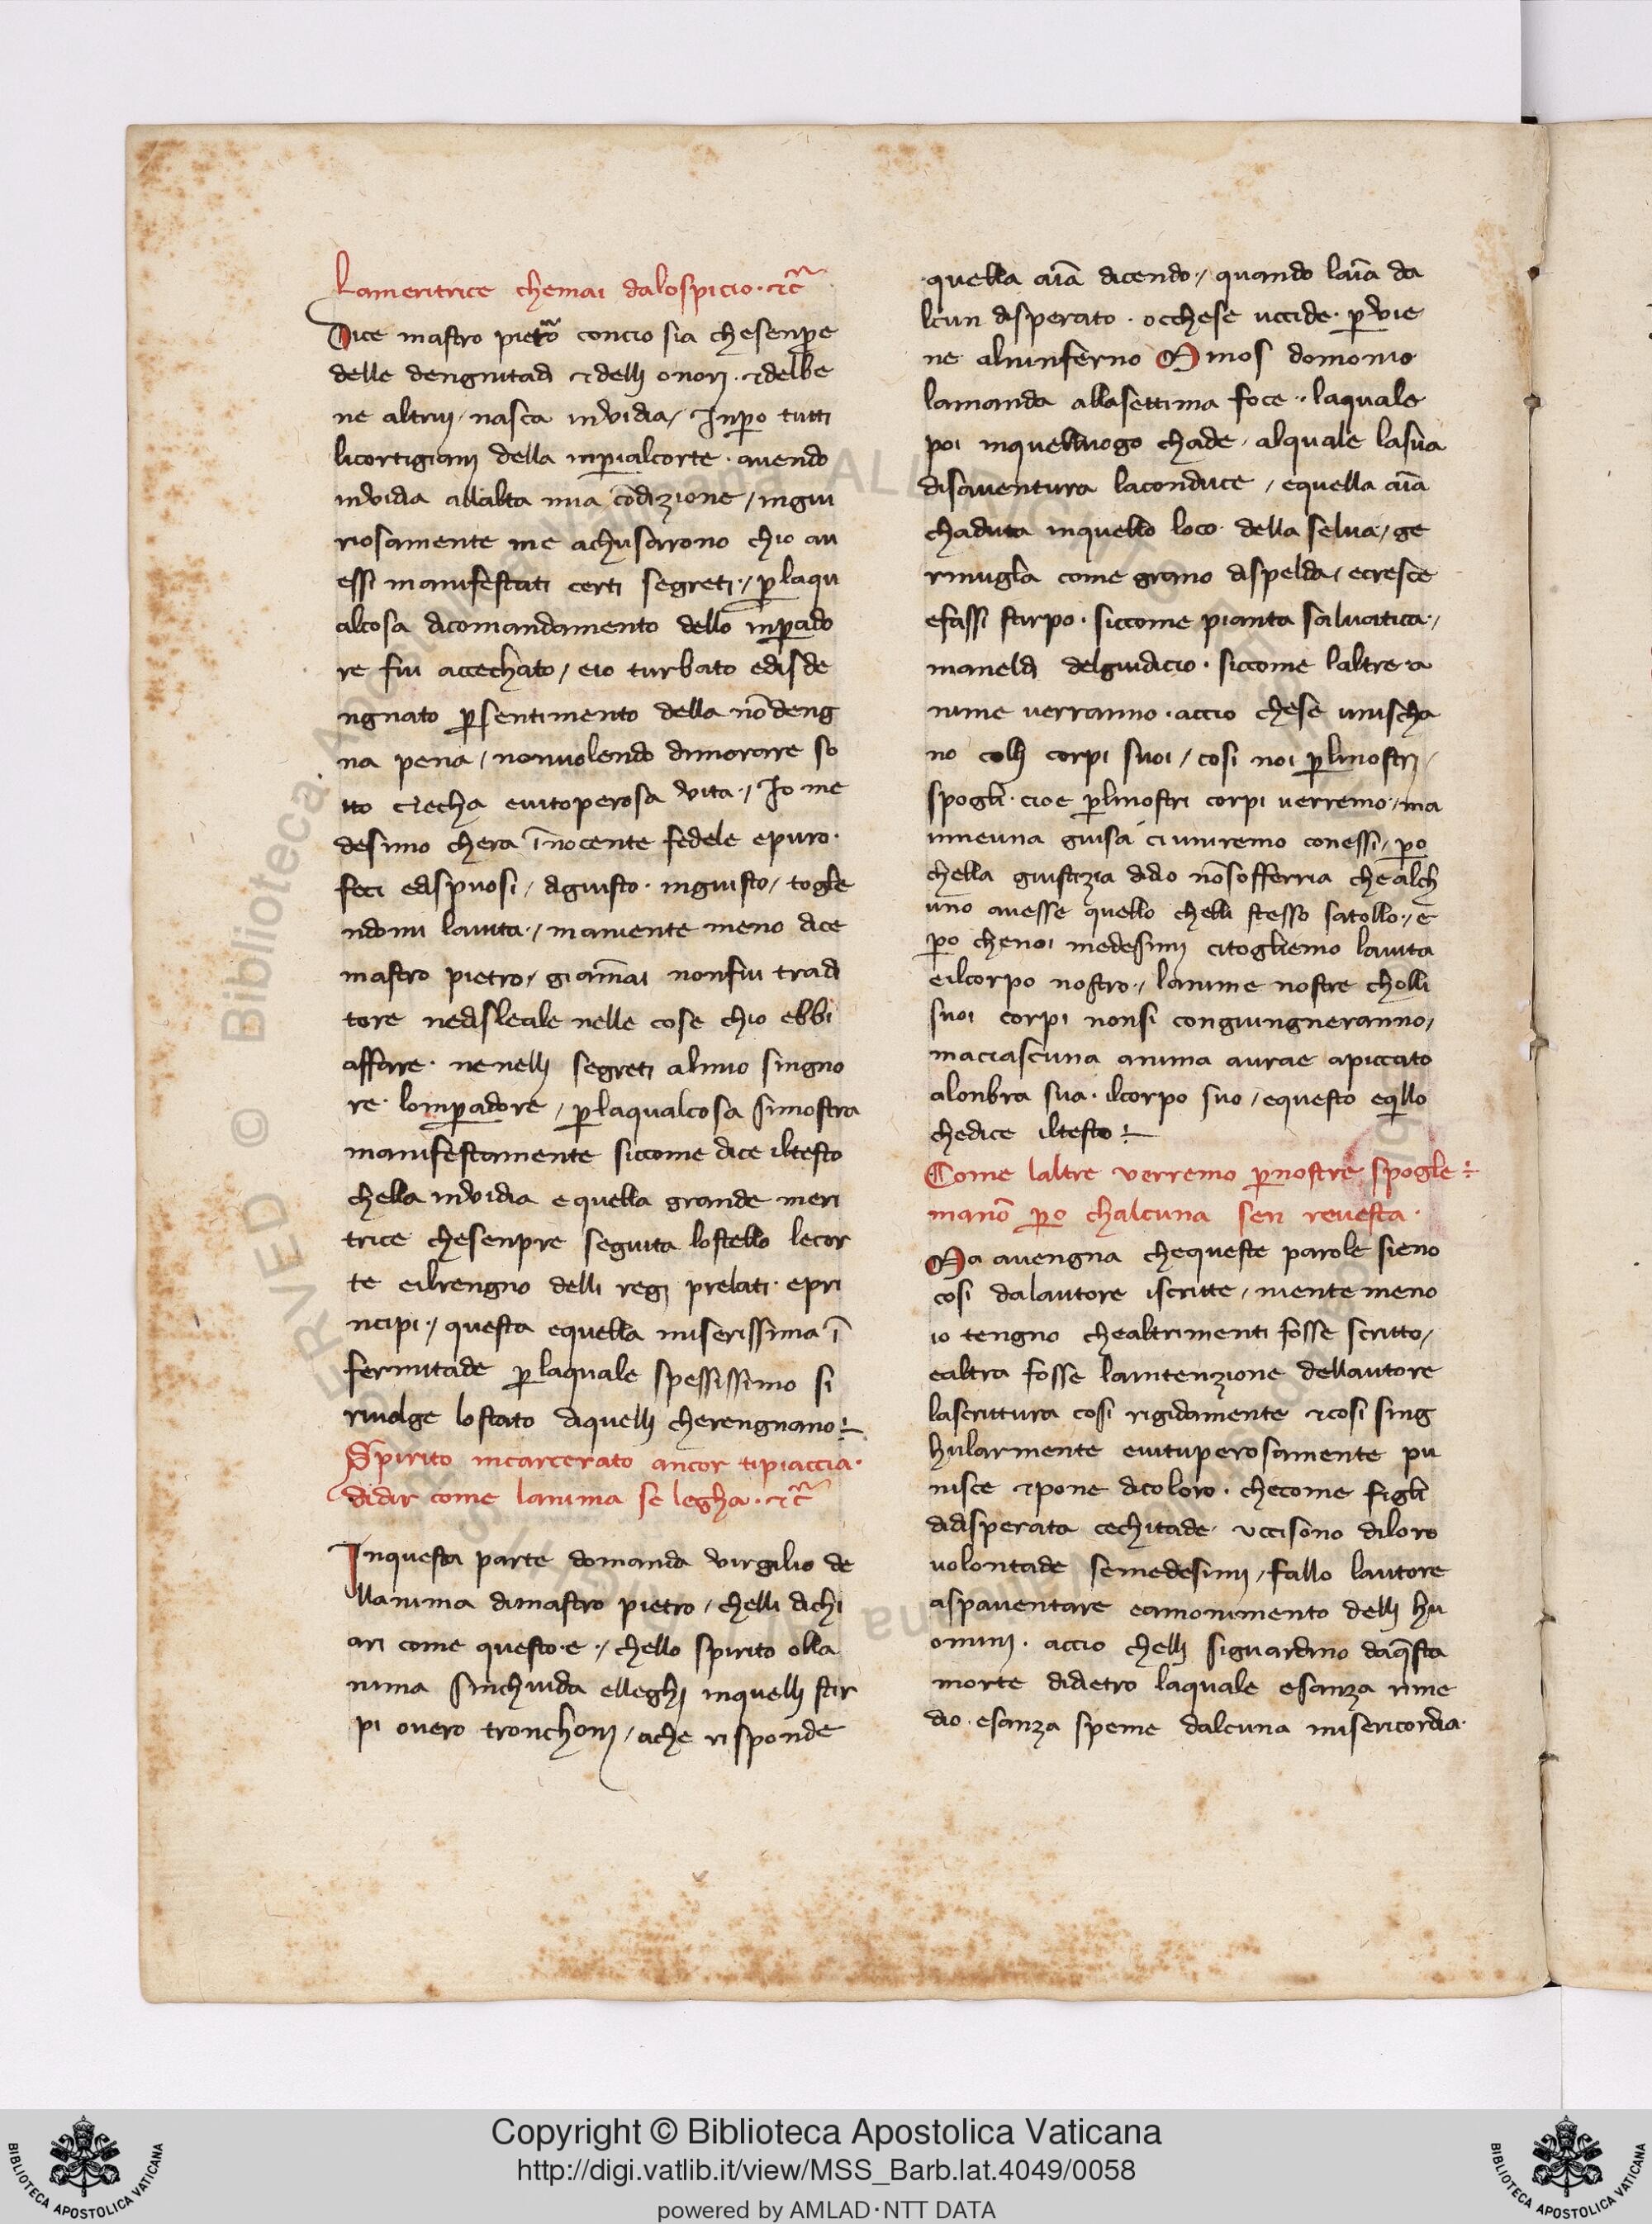 Lameritrice chemai dalospicio · ⁊c̃
Dice mastro pietro concio sia chesenpre
delle dengnitadi ⁊delli onori · ⁊delbe
ne altrui / nasca invidia / Inpero tutti
licortigiani della inp̱ialcorte · auendo
invidia allalta mia cōdizione / ingiu
riosamente me achusarono chio au
essi manifestati certi segreti · / p̱laqu
alcosa dicomandamento dello inp̱ado
re fui accechato / eio turbato edisde
ngnato p̱sentimento della nōdeng
na pena / nonuolendo dimorare so
tto ciecha euitoperosa vita · / Io me
desimo chera īnocente fedele epuro ·
feci edispuosi / digiusto · ingiusto / togle
ndomi lauita · / maniente meno dice
mastro pietro / giām̄ai nonfui tradi
tore nedisleale nelle cose chio ebbi
affare · nenelli segreti almio singno
re · lomp̱adore / p̱laqualcosa simostra
manifestamente siccome dice iltesto
chella invidia e quella grande meri
trice chesenpre seguita lostello lecor
te eilrengno delli regi prelati · epri
ncipi · / questa equella miserissima ī
fermitade p̱laquale spessissimo si
riuolge lostato diquelli cherengnano ÷
Spirito incarcerato ancor tipiaccia ·
didir come lanima se legha · ⁊c̃
Inquesta parte domanda virgilio de
llanima dimastro pietro / chelli dichi
ari come questo · e · / chello spirito olla
nima sinchiuda elleghi inquelli stir
pi ouero tronchoni / ache risponde
quella aīa dicendo · / quando laīa da
lcun disperato · occhese uccide · p̱vie
ne alninferno Minos domonio
lamanda allasettima foce · / laquale
poi inquelluogo chade / alquale lasua
disauentura laconduce / equella aīa
chaduta inquello loco della selua / ge
rmugla come grano dispelda / ecresce
efassi stirpo · siccome pianta saluatica · /
maneldi delgiudicio · siccome laltre · a
nime uerranno · accio chese unischa
no colli corpi suoi / cosi noi p̱linostri /
spogli · cioe p̱linostri corpi uerremo · / ma
inneuna guisa ciuniremo conessi / p̱o
chella giustizia didio nōsofferria chealch
uno auesse quello chelli stesso satollo · / e
p̱o chenoi medesimi citogliemo lauita
eilcorpo nostro · / lanime nostre cholli
suoi corpi nonsi congiungneranno /
maciascuna anima aurae apiccato
alonbra sua · ilcorpo suo / equesto eq̄llo
chedice iltesto ÷
Come laltre verremo p̱nostre spogle ÷
manō p̱o chalcuna sen reuesta ·
Ma auengna chequeste parole sieno
cosi dalautore iscritte / niente meno
io tengno chealtrimenti fosse scritto /
ealtra fosse laintenzione dellautore
lascrittura cosi rigidamente ⁊cosi sing
hularmente euituperosamente pu
nisce ⁊pone dicoloro · checome figli
didisperata cechitade · uccisono diloro
uolontade semedesimi / fallo lautore
aspauentare eamonimento delli hu
omini · accio chelli siguardino daq̄sta
morte didietro laquale esanza rime
dio · esanza speme dalcuna misericordia ·
© Biblioteca Apostolica Vaticana
Copyright © Biblioteca Apostolica Vaticana
http://digi.vatlib.it/view/MSS_Barb.lat.4049/0058
powered by AMLAD · NTT DATA
BIBLIOTECA APOSTOLICA VATICANA
BIBLIOTECA APOSTOLICA VATICANA